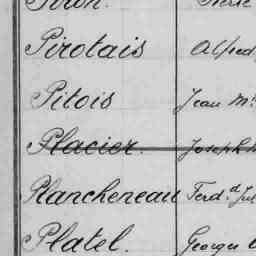 Pirotais Alfred
Pitois Jean M.
Placier. Joseph
Plancheneau Ferd.d Jul
Platel. Georges